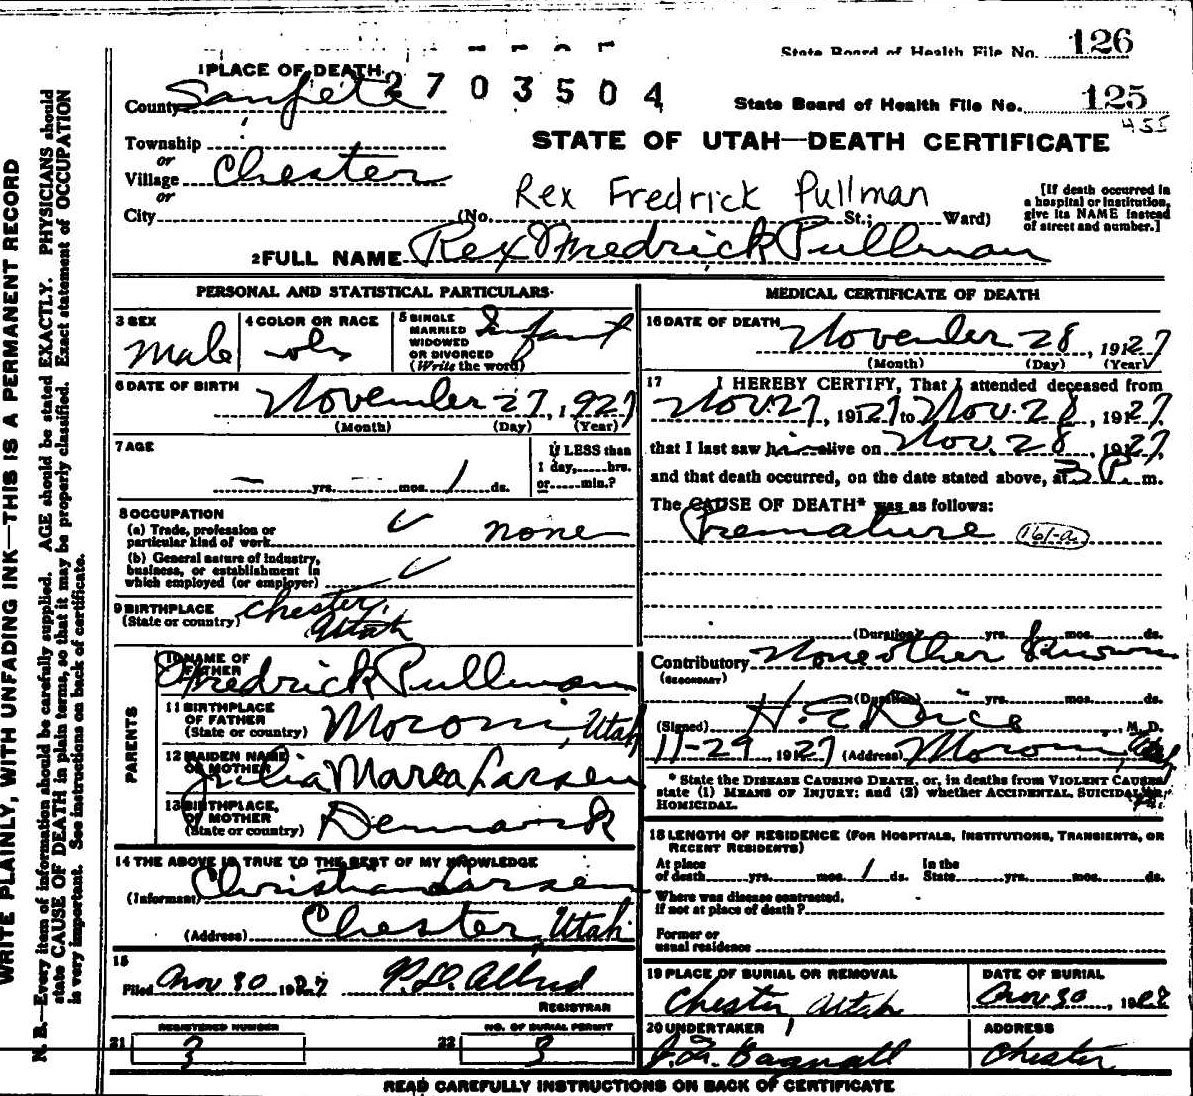 State Board of Health File No. 126
1 PLACE OF DEATH
2703504
County Sanpete
State Board of Health File No. 125
455
Township
or
Village Chester
or
City (No. St.; Ward)
STATE OF UTAH—DEATH CERTIFICATE
Rex Fredrick Pullman
[If death occurred in
a hospital or institution,
give its NAME instead
of street and number.]
2 FULL NAME Rex Fredrick Pullman
PERSONAL AND STATISTICAL PARTICULARS
3 SEX
Male
4 COLOR OR RACE
5 SINGLE
MARRIED
WIDOWED
OR DIVORCED
(Write the word)
Infant
6 DATE OF BIRTH
November 27, 1927
(Month) (Day) (Year)
7 AGE
— yrs. — mos. 1 ds.
If LESS than
1 day,......hrs.
or......min.?
8 OCCUPATION
(a) Trade, profession or
particular kind of work none
(b) General nature of industry,
business, or establishment in
which employed (or employer)
9 BIRTHPLACE
(State or country)
Chester,
Utah
PARENTS
10 NAME OF
FATHER
Fredrick Pullman
11 BIRTHPLACE
OF FATHER
(State or country)
Moroni, Utah
12 MAIDEN NAME
OF MOTHER
Julia Marea Larsen
13 BIRTHPLACE,
OF MOTHER
(State or country)
Denmark
14 THE ABOVE IS TRUE TO THE BEST OF MY KNOWLEDGE
(Informant) Christian Larsen
(Address) Chester, Utah
15
Filed Nov 30 1927 P.D. Allred
REGISTRAR
REGISTERED NUMBER
21 3
NO. OF BURIAL PERMIT
22 3
MEDICAL CERTIFICATE OF DEATH
16 DATE OF DEATH
November 28, 1927
(Month) (Day) (Year)
17 I HEREBY CERTIFY, That I attended deceased from
Nov. 27, 1927 to Nov. 28, 1927
that I last saw him alive on Nov. 28 1927
and that death occurred, on the date stated above, at 3 P. m.
The CAUSE OF DEATH* was as follows:
Premature 161-a
(Duration) yrs. mos. ds.
Contributory None other known
(SECONDARY)
(Duration) yrs. mos. ds.
(Signed) H. E. Rice M. D.
11-29 1927 (Address) Moroni, Utah
* State the DISEASE CAUSING DEATH, or, in deaths from VIOLENT CAUSES
state (1) MEANS OF INJURY; and (2) whether ACCIDENTAL, SUICIDAL or
HOMICIDAL.
18 LENGTH OF RESIDENCE (FOR HOSPITALS, INSTITUTIONS, TRANSIENTS, OR
RECENT RESIDENTS)
At place
of death yrs. mos. 1 ds.
In the
State yrs. mos. ds.
Where was disease contracted,
if not at place of death?
Former or
usual residence
19 PLACE OF BURIAL OR REMOVAL
Chester, Utah
DATE OF BURIAL
Nov 30, 192
20 UNDERTAKER
Bagnall
ADDRESS
Chester
READ CAREFULLY INSTRUCTIONS ON BACK OF CERTIFICATE
WRITE PLAINLY, WITH UNFADING INK—THIS IS A PERMANENT RECORD
N. B.—Every item of information should be carefully supplied. AGE should be stated EXACTLY. PHYSICIANS should
state CAUSE OF DEATH in plain terms, so that it may be properly classified. Exact statement of OCCUPATION
is very important. See instructions on back of certificate.